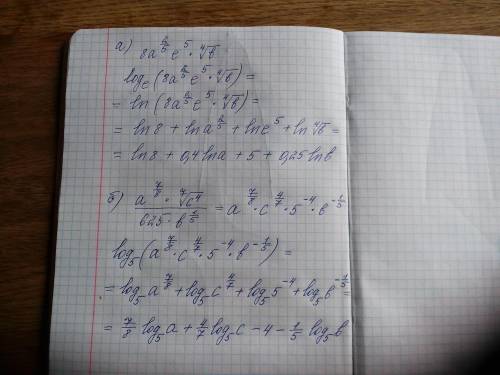 а) 8a^(2/5) e^5 · ⁴√b
log_e (8a^(2/5) e^5 · ⁴√b) =
= ln (8a^(2/5) e^5 · ⁴√b) =
= ln 8 + ln a^(2/5) + ln e^5 + ln ⁴√b =
= ln 8 + 0,4 ln a + 5 + 0,25 ln b
б) (a^(7/8) · ⁷√c⁴) / (625 · b^(1/5)) = a^(7/8) · c^(4/7) · 5^(-4) · b^(-1/5)
log_5 (a^(7/8) · c^(4/7) · 5^(-4) · b^(-1/5)) =
= log_5 a^(7/8) + log_5 c^(4/7) + log_5 5^(-4) + log_5 b^(-1/5) =
= 7/8 log_5 a + 4/7 log_5 c - 4 - 1/5 log_5 b